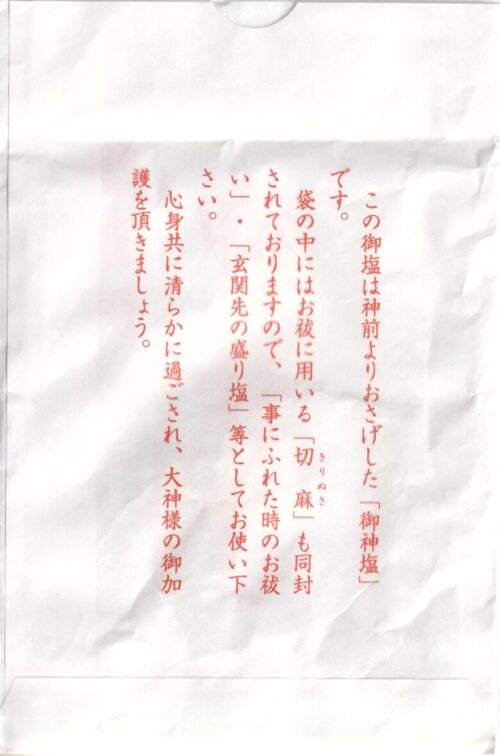 この御塩は神前よりおさげした「御神塩」
です。
袋の中にはお祓に用いる「切　麻」も同封
きりぬさ
されておりますので、「事にふれた時のお祓
い」・「玄関先の盛り塩」等としてお使い下
さい。
心身共に清らかに過ごされ、大神様の御加
護を頂きましょう。